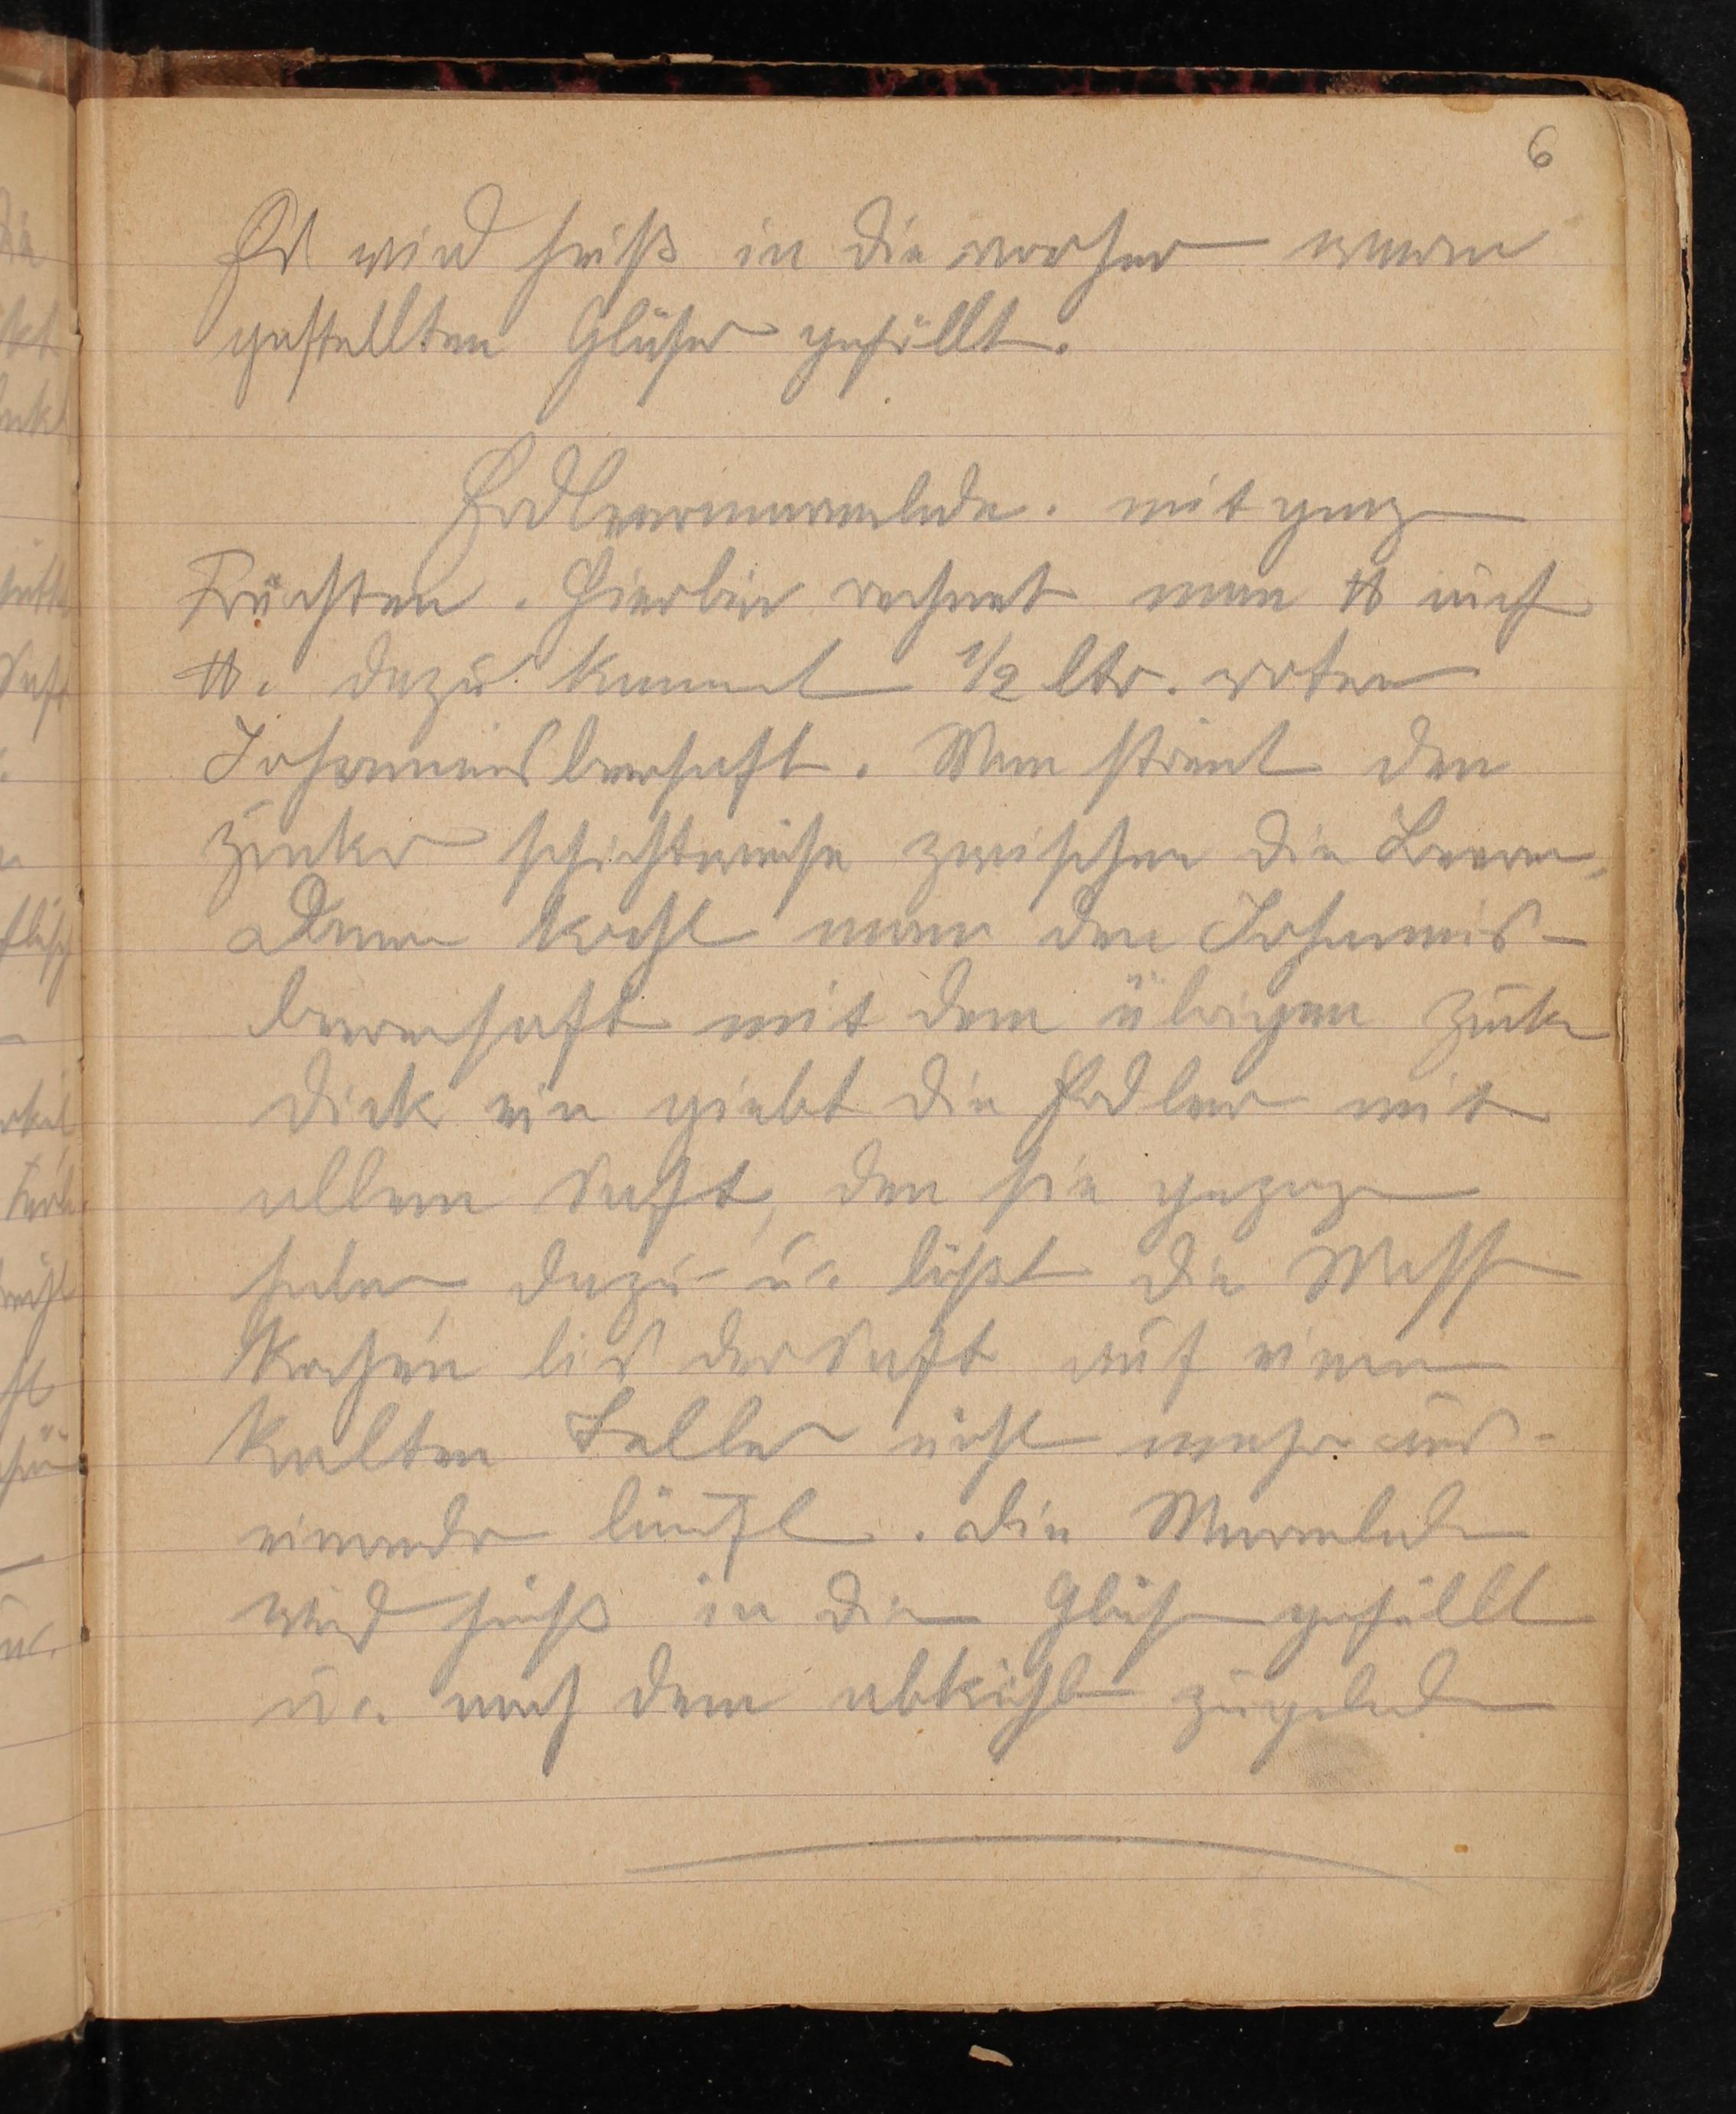 6
Es wird heiß in die vorher warm
gestellten Gläser gefüllt.
Erdbeermarmelade. mit ganz
Früchten. Hierbei rechnet man ℔ auf
℔. dazu kommt 1/2 ltr. roten
Johannisbeersaft. Man streut den
Zucker schichtweise zwischen die Beeren,
Dann kocht man den Johannis-
beersaft mit dem übrigen Zucker
dick ein giebt die Erdbeer mit
allem Saft, den sie gezogen
haben dazu u. läßt die Masse
Kochen bis der Saft auf einem
kalten Teller nicht mehr aus-
einander läuft. die Marmelade
wird heiß in die Gläser gefüllt
u. nach dem abkühlen zugebunden